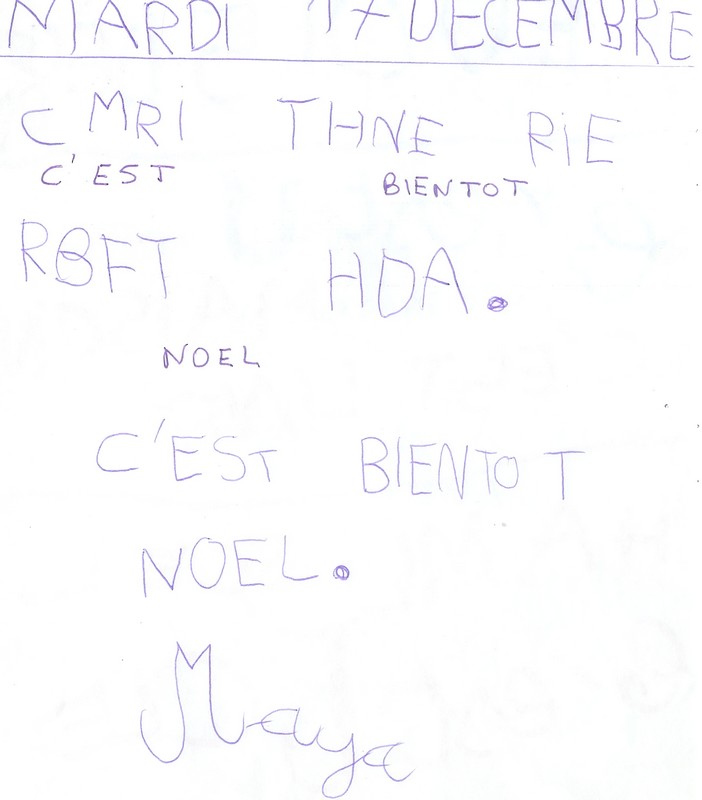 MARDI 17 DECEMBRE
C MRi THNE RiE
C'EST BIENTOT
RBFT HDA.
NOEL
C'EST BIENTOT
NOEL.
Maya